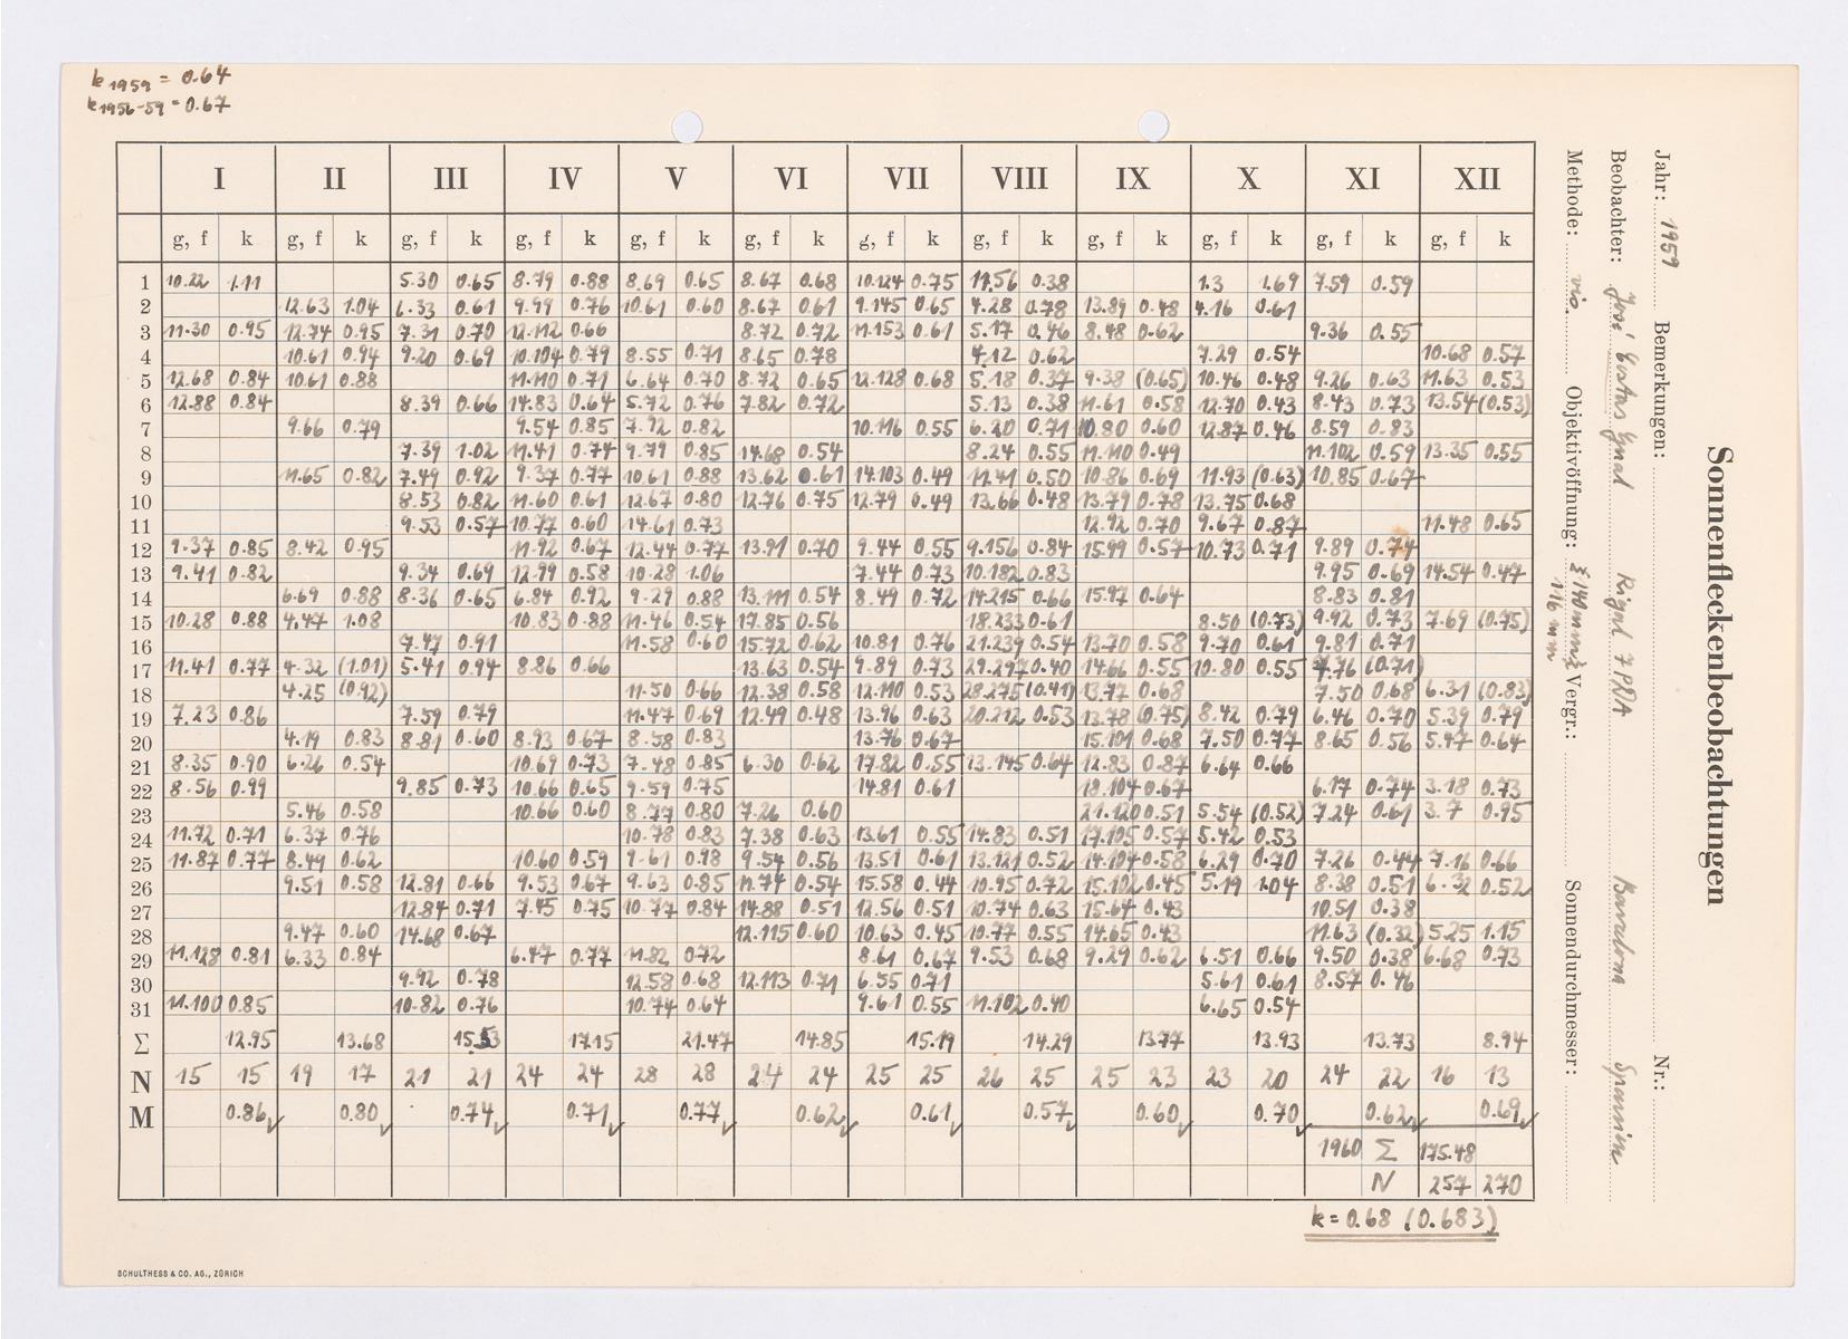 k 1959 = 0.64
k 1956-59 = 0.67
Sonnenfleckenbeobachtungen
Jahr: 1959 Bemerkungen: Nr.:
Beobachter: José Gustav Rigol 7 PRDA Barcelona Spanien
Methode: vis. Objektivöffnung: 116 mm Vergr.: Sonnendurchmesser:
I II III IV V VI VII VIII IX X XI XII
g, f k g, f k g, f k g, f k g, f k g, f k g, f k g, f k g, f k g, f k g, f k g, f k
1 10.22 1.11 5.30 0.65 8.79 0.88 8.69 0.65 8.67 0.68 10.124 0.75 11.56 0.38 1.3 1.69 7.59 0.59
2 12.63 1.04 6.33 0.61 9.99 0.76 10.61 0.60 8.67 0.61 9.145 0.65 4.28 0.78 13.89 0.48 4.16 0.61
3 11.30 0.95 12.74 0.95 7.31 0.70 12.112 0.66 8.72 0.72 11.153 0.61 5.17 0.46 8.48 0.62 9.36 0.55
4 10.61 0.94 9.20 0.69 10.104 0.79 8.55 0.71 8.65 0.78 4.12 0.62 7.29 0.54 10.68 0.57
5 12.68 0.84 10.61 0.88 11.110 0.71 6.64 0.70 8.72 0.65 12.128 0.68 5.18 0.37 9.38 (0.65) 10.46 0.48 9.26 0.63 11.63 0.53
6 12.88 0.84 8.39 0.66 14.83 0.64 5.72 0.76 7.82 0.72 5.13 0.38 11.61 0.58 12.70 0.43 8.43 0.73 13.54 (0.53)
7 9.66 0.79 9.54 0.85 7.72 0.82 10.116 0.55 6.20 0.71 10.80 0.60 12.87 0.46 8.59 0.83
8 7.39 1.02 11.41 0.74 9.79 0.85 14.68 0.54 8.24 0.55 11.110 0.49 11.102 0.59 13.35 0.55
9 11.65 0.82 7.49 0.92 9.37 0.77 10.61 0.88 13.62 0.61 14.103 0.49 11.41 0.50 10.86 0.69 11.93 (0.63) 10.85 0.67
10 8.53 0.82 11.60 0.61 12.67 0.80 12.76 0.75 12.79 0.49 13.66 0.48 13.79 0.78 13.75 0.68
11 9.53 0.57 10.77 0.60 14.61 0.73 12.92 0.70 9.67 0.87 11.48 0.65
12 9.37 0.85 8.42 0.95 11.92 0.67 12.44 0.77 13.91 0.70 9.44 0.55 9.156 0.84 15.99 0.57 10.73 0.71 9.89 0.74
13 9.41 0.82 9.34 0.69 12.99 0.58 10.28 1.06 7.44 0.73 10.182 0.83 9.95 0.69 14.54 0.47
14 6.69 0.88 8.36 0.65 6.84 0.92 9.29 0.88 13.111 0.54 8.49 0.72 14.215 0.66 15.97 0.64 8.83 0.81
15 10.28 0.88 4.47 1.08 10.83 0.88 11.46 0.54 17.85 0.56 18.233 0.61 8.50 (0.73) 9.92 0.73 7.69 (0.75)
16 7.47 0.91 11.58 0.60 15.72 0.62 10.81 0.76 21.239 0.54 13.70 0.58 9.70 0.61 9.81 0.71
17 11.41 0.77 4.32 (1.01) 5.41 0.94 8.86 0.66 13.63 0.54 9.89 0.73 29.297 0.40 14.66 0.55 10.80 0.55 7.76 (0.71)
18 4.25 (0.92) 11.50 0.66 12.38 0.58 12.110 0.53 28.275 (0.41) 13.77 0.68 7.50 0.68 6.31 (0.83)
19 7.23 0.86 7.59 0.79 11.47 0.69 12.49 0.48 13.96 0.63 20.212 0.53 13.78 (0.75) 8.42 0.79 6.46 0.70 5.39 0.79
20 4.19 0.83 8.81 0.60 8.93 0.67 8.58 0.83 13.76 0.67 15.101 0.68 7.50 0.77 8.65 0.56 5.47 0.64
21 8.35 0.90 6.26 0.54 10.69 0.73 7.48 0.85 6.30 0.62 17.82 0.55 13.145 0.64 12.83 0.87 6.64 0.66
22 8.56 0.99 9.85 0.73 10.66 0.65 9.59 0.75 14.81 0.61 18.104 0.67 6.17 0.74 3.18 0.73
23 5.46 0.58 10.66 0.60 8.77 0.80 7.26 0.60 21.120 0.51 5.54 (0.52) 7.24 0.61 3.7 0.95
24 11.72 0.71 6.37 0.76 10.78 0.83 7.38 0.63 13.61 0.55 14.83 0.51 17.105 0.57 5.42 0.53
25 11.87 0.77 8.49 0.62 10.60 0.59 9.61 0.98 9.54 0.56 13.51 0.61 13.121 0.52 14.104 0.58 6.29 0.70 7.26 0.44 7.16 0.66
26 9.51 0.58 12.81 0.66 9.53 0.67 9.63 0.85 11.74 0.54 15.58 0.44 10.95 0.72 15.102 0.45 5.19 1.04 8.38 0.51 6.32 0.52
27 12.84 0.71 7.45 0.75 10.77 0.84 14.88 0.51 12.56 0.51 10.74 0.63 15.64 0.43 10.51 0.38
28 9.47 0.60 14.68 0.67 12.115 0.60 10.63 0.45 10.77 0.55 14.65 0.43 11.63 (0.32) 5.25 1.15
29 11.128 0.81 6.33 0.84 6.47 0.77 11.82 0.72 8.61 0.67 9.53 0.68 9.29 0.62 6.51 0.66 9.50 0.38 6.68 0.73
30 9.92 0.78 12.58 0.68 12.113 0.71 6.55 0.71 5.61 0.61 8.57 0.46
31 11.100 0.85 10.82 0.76 10.74 0.64 9.61 0.55 11.102 0.40 6.65 0.54
Σ 12.95 13.68 15.53 17.15 21.47 14.85 15.19 14.29 13.77 13.93 13.73 8.94
N 15 15 19 17 21 21 24 24 28 28 24 24 25 25 26 25 25 23 23 20 24 22 16 13
M 0.86 0.80 0.74 0.71 0.77 0.62 0.61 0.57 0.60 0.70 0.62 0.69
1960 Σ 175.48
N 257 270
k = 0.68 (0.683)
SCHULTHESS & CO. AG., ZÜRICH